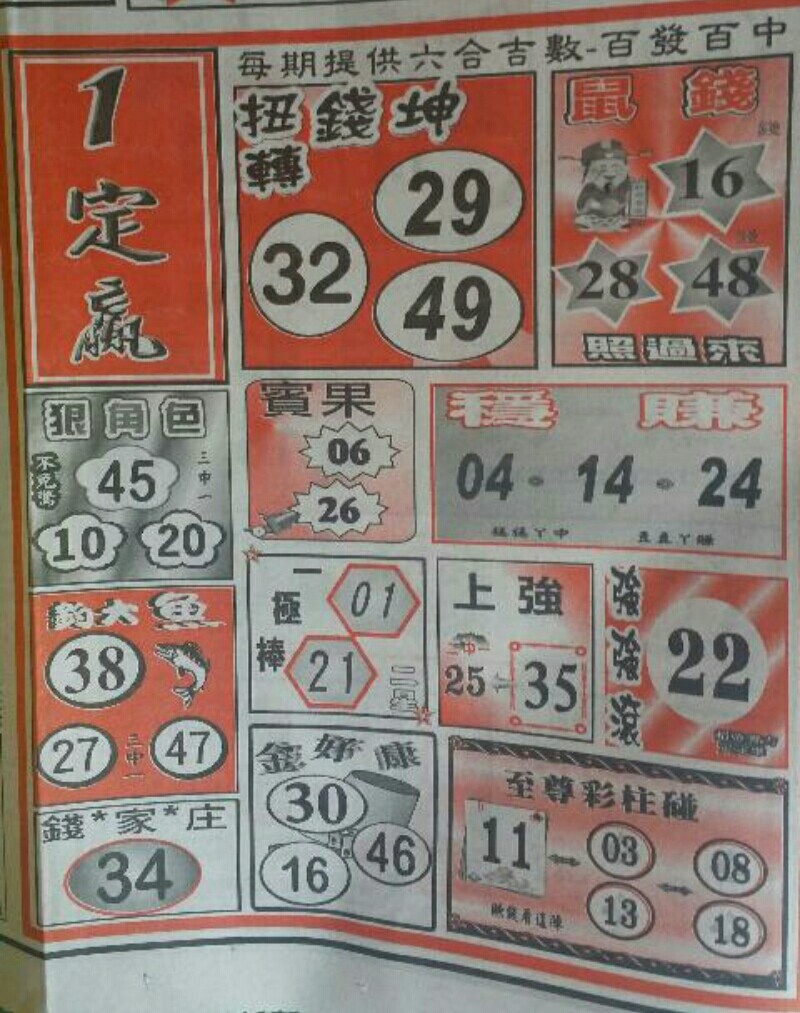 每期提供六合吉數-百發百中
1定贏
扭轉錢坤
29
32
49
鼠錢
16
28
48
照過來
狠角色
三中一
45
10
20
賓果
06
26
穩賺
04·14·24
釣大魚
38
27
三中一
47
一極棒
01
21
二星
上強
二中一
25
35
強強滾
22
錢*家*庄
34
金好康
30
16
46
至尊彩柱碰
11
03
08
13
18
賺錢看這陣